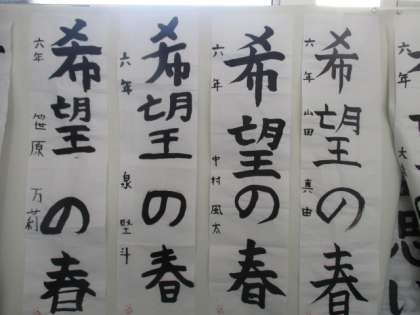 希望の春
六年 山田 真由
希望の春
六年 中村 風太
希望の春
六年 泉 堅斗
希望の春
六年 笹原 万莉